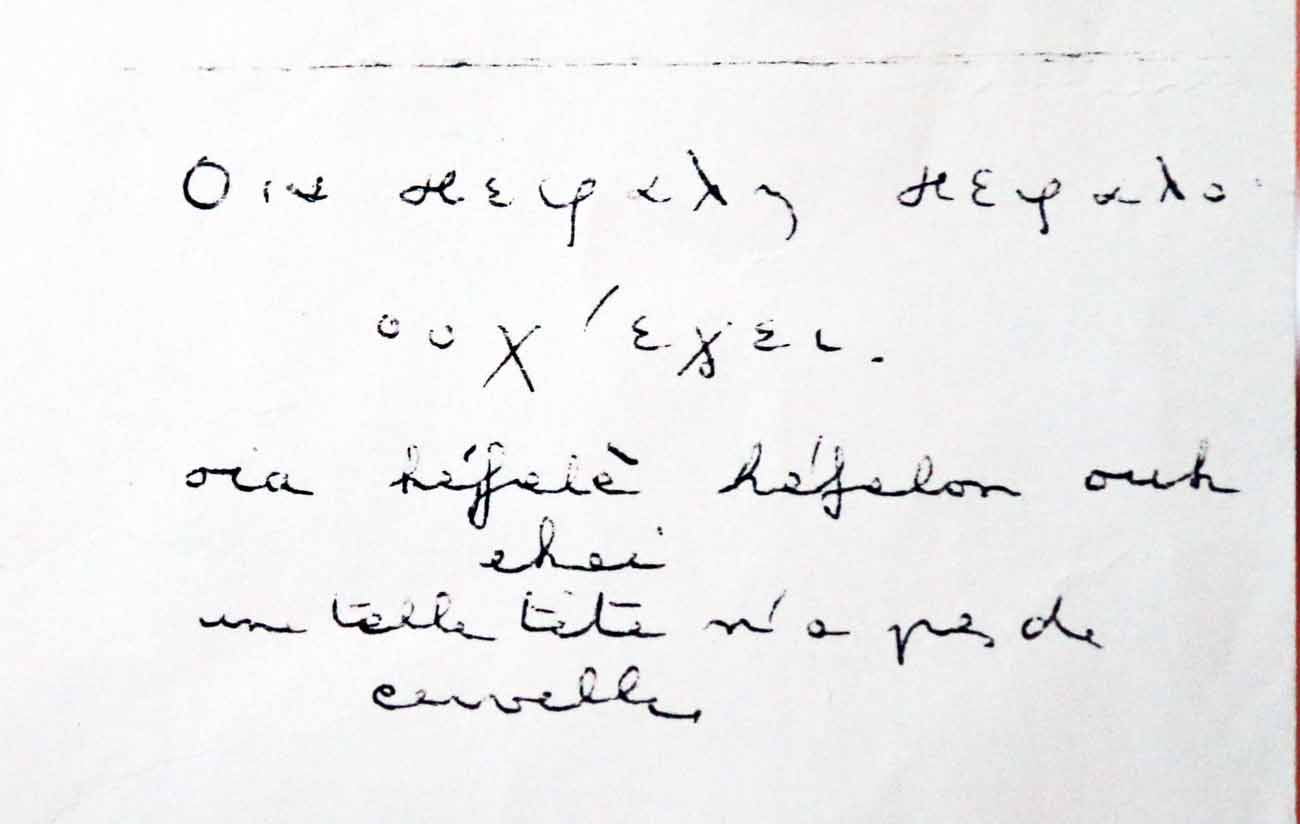 Οια κεφαλη κεφαλο
ουχ 'εχει.
oia kéfalè kéfalon ouk
ekei
une telle tête n'a pas de
cervelle